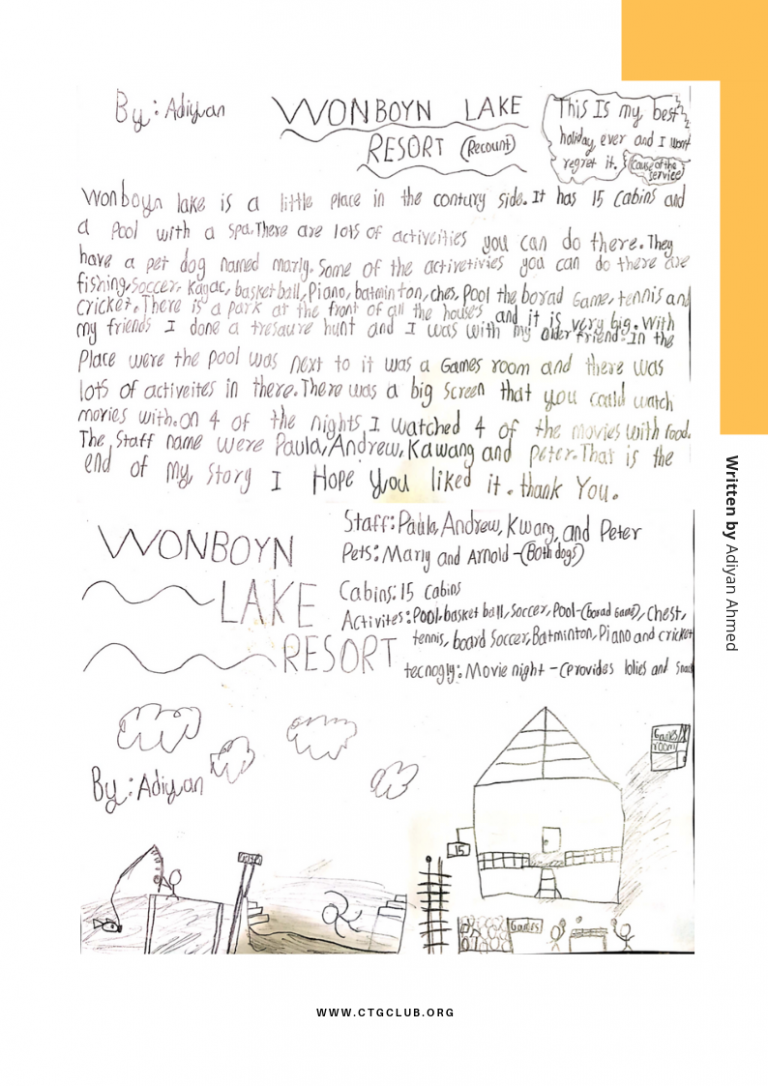 By: Adiyan
WONBOYN LAKE
RESORT (Recount)
This Is my best
holiday, ever and I wont
regret it. (cause of the
service)
Wonboyn lake is a little place in the contury side. It has 15 Cabins and
a pool with a spa. There are lots of activeities you can do there. They
have a pet dog named marly. Some of the activetivies you can do there are
fishing, soccer, kayac, basket ball, Piano, batminton, ches, Pool the borad Game, tennis and
cricket. There is a park at the front of all the houses and it is very big. With
my friends I done a tresaure hunt and I was with my older friend. In the
Place were the pool was next to it was a Games room and there was
lots of activeites in there. There was a big screen that you could watch
movies with. On 4 of the nights I watched 4 of the movies with food.
The Staff name were Paula, Andrew, Kawang and Peter. That is the
end of my story I Hope you liked it. thank You.
WONBOYN
LAKE
RESORT
Staff: Paula, Andrew, Kwang, and Peter
Pets: Marly and Arnold - (Both dogs)
Cabins: 15 cabins
Activites: Pool, basket ball, Soccer, Pool - (borad Game), Chest,
tennis, board Soccer, Batminton, Piano and cricket
tecnogly: Movie night - (Provides lolies and
By: Adiyan
Games
room
15
Games
Written by Adiyan Ahmed
WWW.CTGCLUB.ORG